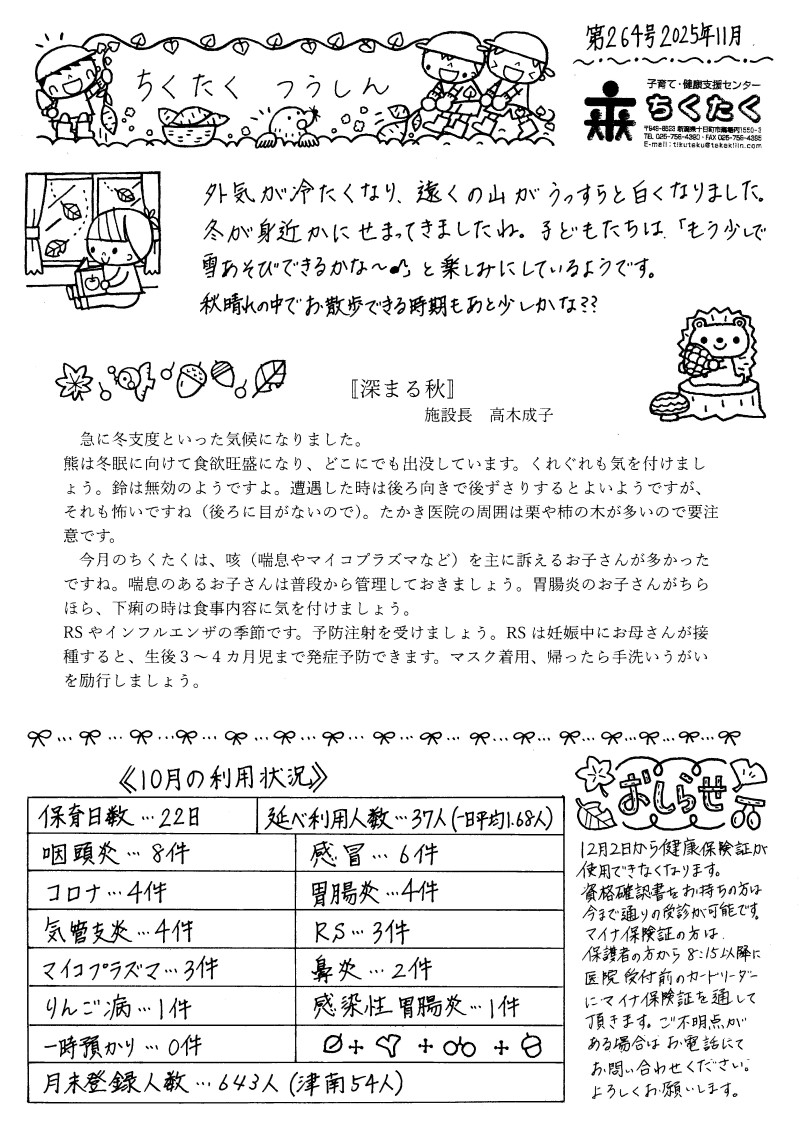 第264号 2025年11月
ちくたく つうしん
子育て・健康支援センター
ちくたく
〒948-8523 新潟県十日町市高場内1550-3
TEL 025-756-4390・FAX 025-756-4365
E-mail:tikutaku@takakiiin.com
外気が冷たくなり、遠くの山がうっすらと白くなりました。
冬が身近かにせまってきましたね。子どもたちは、「もう少しで
雪あそびできるかな〜♪」と楽しみにしているようです。
秋晴れの中でお散歩できる時期もあと少しかな??
〚深まる秋〛
施設長 高木成子
急に冬支度といった気候になりました。
熊は冬眠に向けて食欲旺盛になり、どこにでも出没しています。くれぐれも気を付けまし
ょう。鈴は無効のようですよ。遭遇した時は後ろ向きで後ずさりするとよいようですが、
それも怖いですね（後ろに目がないので）。たかき医院の周囲は栗や柿の木が多いので要注
意です。
今月のちくたくは、咳（喘息やマイコプラズマなど）を主に訴えるお子さんが多かった
ですね。喘息のあるお子さんは普段から管理しておきましょう。胃腸炎のお子さんがちら
ほら、下痢の時は食事内容に気を付けましょう。
RSやインフルエンザの季節です。予防注射を受けましょう。RSは妊娠中にお母さんが接
種すると、生後３〜４カ月児まで発症予防できます。マスク着用、帰ったら手洗いうがい
を励行しましょう。
《10月の利用状況》
保育日数…22日 延べ利用人数…37人(一日平均1.68人)
咽頭炎…8件 感冒…6件
コロナ…4件 胃腸炎…4件
気管支炎…4件 RS…3件
マイコプラズマ…3件 鼻炎…2件
りんご病…1件 感染性胃腸炎…1件
一時預かり…0件
月末登録人数…643人(津南54人)
おしらせ
12月2日から健康保険証が
使用できなくなります。
資格確認書をお持ちの方は
今まで通りの受診が可能です。
マイナ保険証の方は、
保護者の方から8:15以降に
医院受付前のカードリーダー
にマイナ保険証を通して
頂きます。ご不明点が
ある場合はお電話にて
お問い合わせください。
よろしくお願いします。